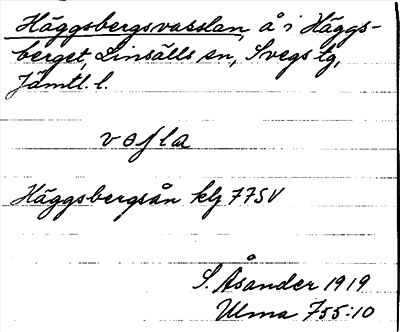 Häggsbergsvasslan, å i Häggs-
berget, Linsälls sn, Svegs tg,
Jämtl. l.
Häggsbergsån klj 77SV
S. Åsander 1919
Ulma 755:10